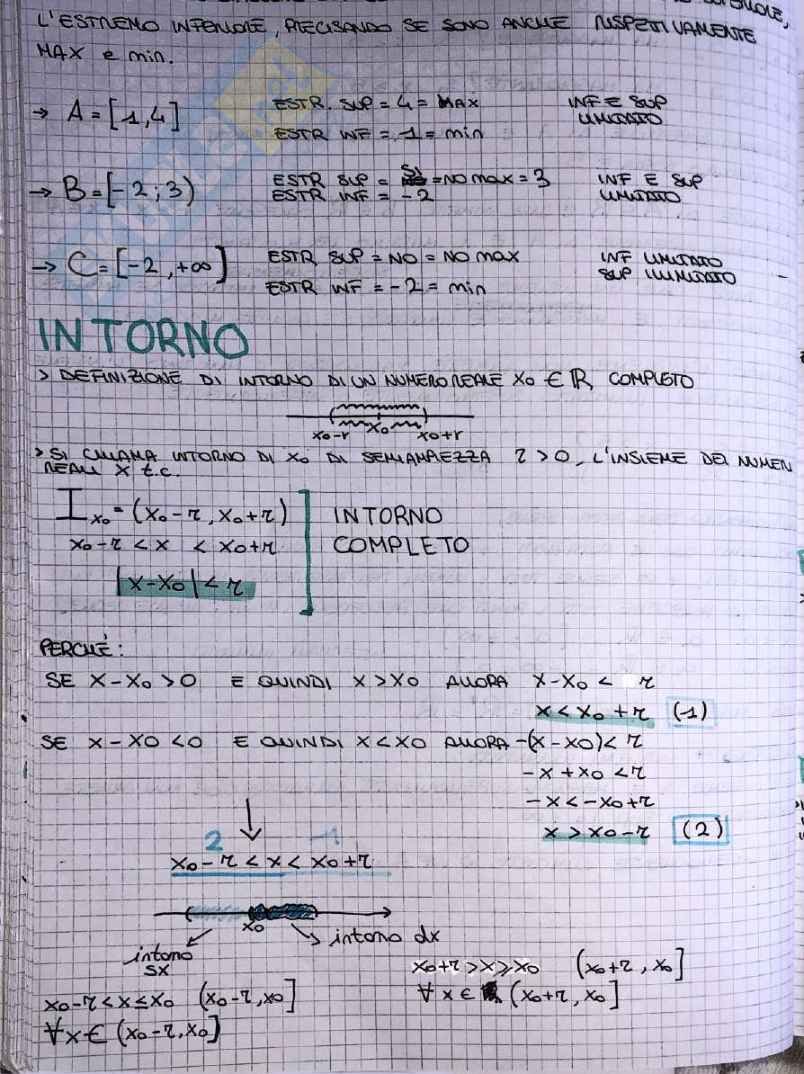 L'ESTREMO INFERIORE, PRECISANDO SE SONO ANCHE RISPETIVAMENTE
MAX e min.
→ A = [1,4] ESTR. SUP = 4 = MAX INF E SUP
ESTR INF = 1 = min LIMITATO
→ B = [-2 ; 3) ESTR SUP = = NO max = 3 INF E SUP
ESTR INF = -2 LIMITATO
→ C = [-2, +∞] ESTR SUP = NO = NO max INF LIMITATO
ESTR INF = -2 = min SUP ILLIMITATO
INTORNO
> DEFINIZIONE DI INTORNO DI UN NUMERO REALE X₀ ∈ ℝ, COMPLETO
x₀-r x₀ x₀+r
> SI CHIAMA INTORNO DI X₀ DI SEMIAMPIEZZA r > 0, L'INSIEME DEI NUMERI
REALI X t.c.
I x₀ = (x₀-r, x₀+r) INTORNO
x₀-r < x < x₀+r COMPLETO
|x-x₀| < r
PERCHÉ:
SE X-X₀ > 0 E QUINDI X > X₀ ALLORA X-X₀ < r
x < x₀ + r (1)
SE X-X₀ < 0 E QUINDI X < X₀ ALLORA -(x-x₀) < r
-x + x₀ < r
-x < -x₀ + r
x > x₀-r (2)
2 1
x₀-r < x < x₀+r
x₀
intorno sx intorno dx
x₀+r > x ≥ x₀ (x₀+r, x₀]
x₀-r < x ≤ x₀ (x₀-r, x₀] ∀ x ∈ (x₀+r, x₀]
∀ x ∈ (x₀-r, x₀]